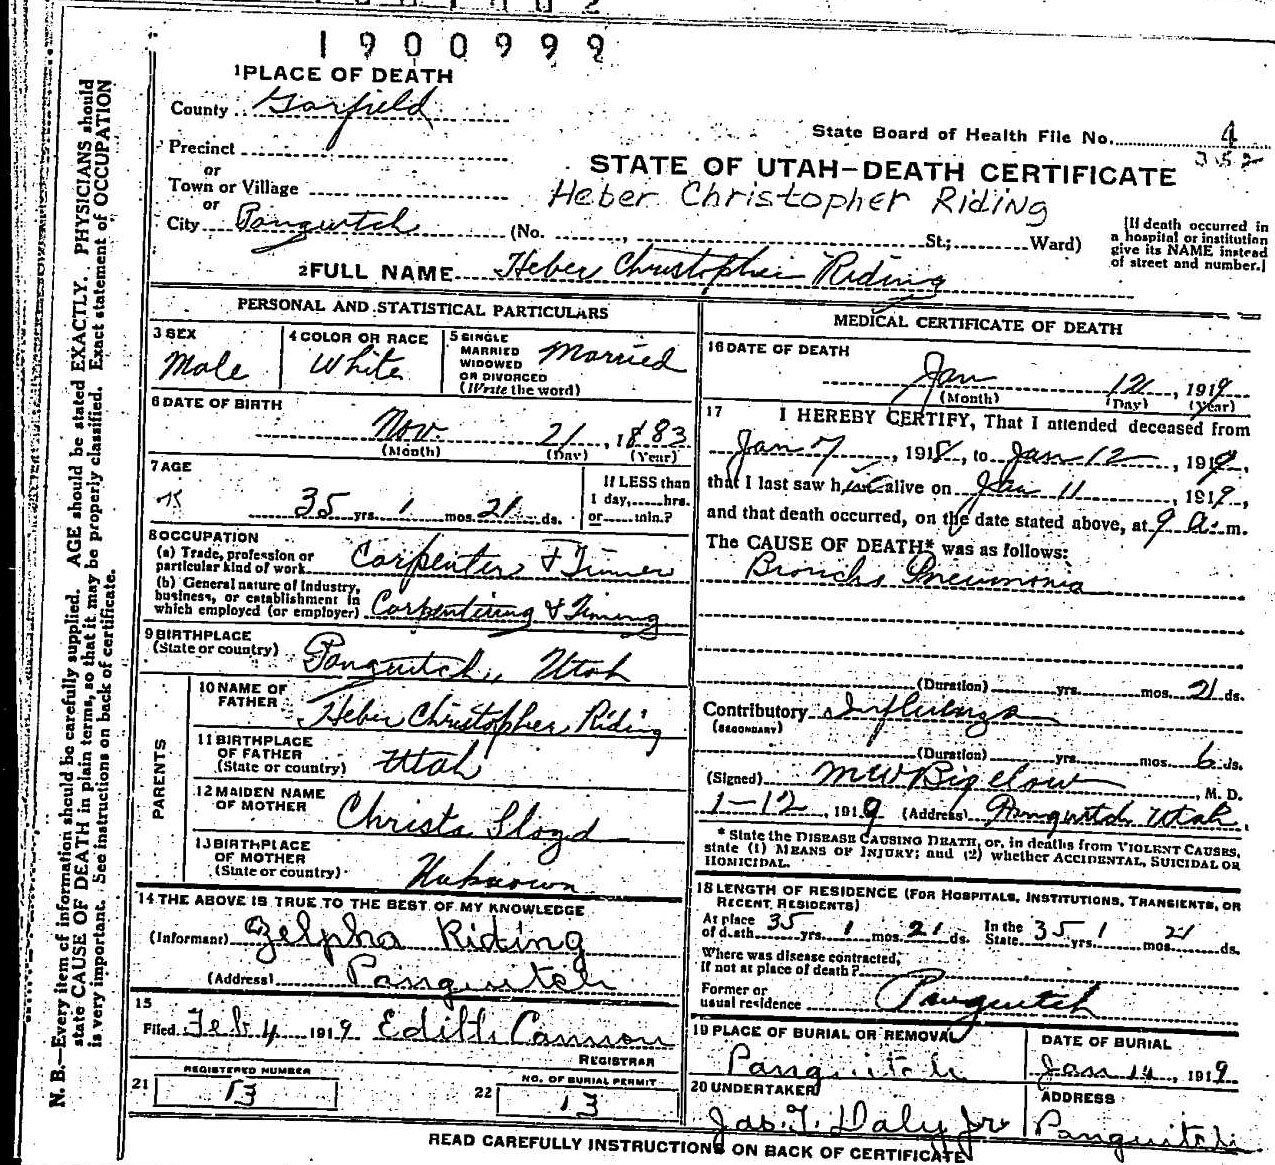 1900999
1 PLACE OF DEATH
County Garfield
State Board of Health File No. 4
352
Precinct
or
Town or Village
or
STATE OF UTAH—DEATH CERTIFICATE
Heber Christopher Riding
City Panguitch (No. , St.; Ward)
[If death occurred in
a hospital or institution
give its NAME instead
of street and number.]
2 FULL NAME Heber Christopher Riding
PERSONAL AND STATISTICAL PARTICULARS
3 SEX
Male
4 COLOR OR RACE
White
5 SINGLE
MARRIED
WIDOWED
OR DIVORCED
(Write the word)
Married
6 DATE OF BIRTH
Nov. 21, 1883
(Month) (Day) (Year)
7 AGE
35 yrs. 1 mos. 21 ds.
If LESS than
1 day, hrs.
or min.?
8 OCCUPATION
(a) Trade, profession or
particular kind of work Carpenter & Tinner
(b) General nature of Industry,
business, or establishment in
which employed (or employer) Carpentering & Tinning
9 BIRTHPLACE
(State or country) Panguitch, Utah
PARENTS
10 NAME OF
FATHER Heber Christopher Riding
11 BIRTHPLACE
OF FATHER
(State or country) Utah
12 MAIDEN NAME
OF MOTHER Christa Lloyd
13 BIRTHPLACE
OF MOTHER
(State or country) Unknown
14 THE ABOVE IS TRUE TO THE BEST OF MY KNOWLEDGE
(Informant) Zelpha Riding
(Address) Panguitch
15
Filed Feb 4 1919 Edith Cannon
REGISTRAR
21 REGISTERED NUMBER
13
22 NO. OF BURIAL PERMIT
13
MEDICAL CERTIFICATE OF DEATH
16 DATE OF DEATH
Jan 12, 1919
(Month) (Day) (Year)
17 I HEREBY CERTIFY, That I attended deceased from
Jan 7, 1919, to Jan 12, 1919,
that I last saw him alive on Jan 11, 1919,
and that death occurred, on the date stated above, at 9 a. m.
The CAUSE OF DEATH* was as follows:
Broncho Pneumonia
(Duration) yrs. mos. 21 ds.
Contributory Influenza
(SECONDARY)
(Duration) yrs. mos. 6 ds.
(Signed) M W Bigelow, M. D.
1-12, 1919 (Address) Panguitch Utah.
* State the DISEASE CAUSING DEATH, or, in deaths from VIOLENT CAUSES,
state (1) MEANS OF INJURY; and (2) whether ACCIDENTAL, SUICIDAL OR
HOMICIDAL.
18 LENGTH OF RESIDENCE (FOR HOSPITALS, INSTITUTIONS, TRANSIENTS, OR
RECENT RESIDENTS)
At place
of death 35 yrs. 1 mos. 21 ds. In the
State 35 yrs. 1 mos. 21 ds.
Where was disease contracted,
if not at place of death?
Former or
usual residence Panguitch
19 PLACE OF BURIAL OR REMOVAL
Panguitch
DATE OF BURIAL
Jan 14, 1919
20 UNDERTAKER
Jas. T. Daly Jr
ADDRESS
Panguitch
READ CAREFULLY INSTRUCTIONS ON BACK OF CERTIFICATE
N. B.—Every item of information should be carefully supplied. AGE should be stated EXACTLY. PHYSICIANS should
state CAUSE OF DEATH in plain terms, so that it may be properly classified. Exact statement of OCCUPATION
is very important. See instructions on back of certificate.